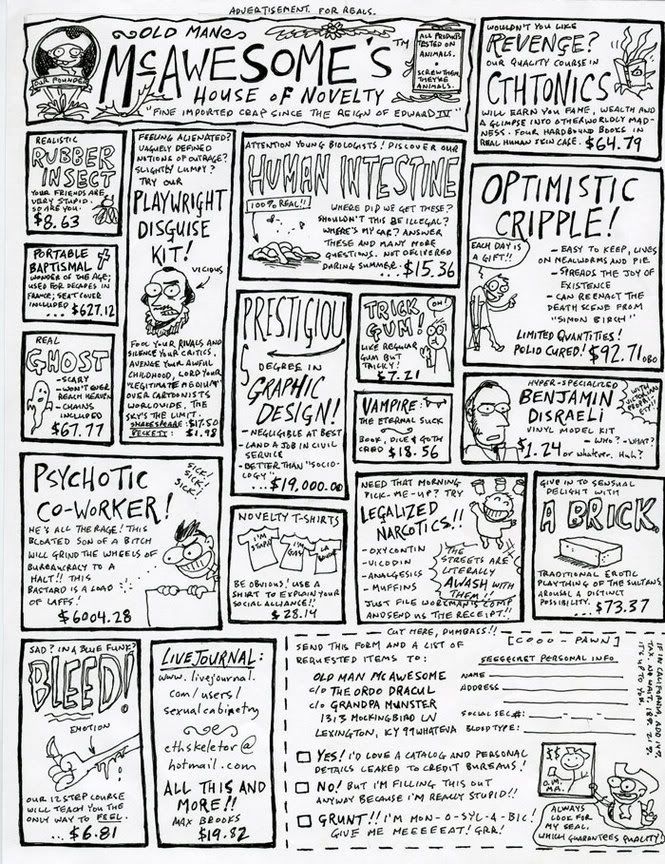 ADVERTISEMENT. FOR REALS.
OLD MAN
McAWESOME'S™
HOUSE OF NOVELTY
"FINE IMPORTED CRAP SINCE THE REIGN OF EDWARD IV"
OUR FOUNDER
ALL PRODUCTS
TESTED ON
ANIMALS.
SCREW THEM,
THEY'RE
ANIMALS.
WOULDN'T YOU LIKE
REVENGE?
OUR QUALITY COURSE IN
CTHTONICS
WILL EARN YOU FAME, WEALTH AND
A GLIMPSE INTO OTHERWORLDLY MAD-
NESS. FOUR HARDBOUND BOOKS IN
REAL HUMAN SKIN CASE. $64.79
REALISTIC
RUBBER
INSECT
YOUR FRIENDS ARE
VERY STUPID.
SO ARE YOU.
$8.63
PORTABLE
BAPTISMAL
WONDER OF THE AGE;
USED FOR DECADES IN
FRANCE; SEAT COVER
INCLUDED
... $627.12
REAL
GHOST
- SCARY
- WON'T EVER
REACH HEAVEN
- CHAINS
INCLUDED
$67.77
FEELING ALIENATED?
VAGUELY DEFINED
NOTIONS OF OUTRAGE?
SLIGHTLY LUMPY?
TRY OUR
PLAYWRIGHT
DISGUISE
KIT!
VICIOUS
FOOL YOUR RIVALS AND
SILENCE YOUR CRITICS.
AVENGE YOUR AWFUL
CHILDHOOD, LORD YOUR
"LEGITIMATE MEDIUM"
OVER CARTOONISTS
WORLDWIDE. THE
SKY'S THE LIMIT.
SHAKESPEARE: $17.50
BECKETT: $1.98
ATTENTION YOUNG BIOLOGISTS! DISCOVER OUR
HUMAN INTESTINE
100% REAL!!
WHERE DID WE GET THESE?
SHOULDN'T THIS BE ILLEGAL?
WHERE'S MY CAR? ANSWER
THESE AND MANY MORE
QUESTIONS. NOT DELIVERED
DARING SUMMER. $15.36
OPTIMISTIC
CRIPPLE!
EACH DAY IS
A GIFT!!
- EASY TO KEEP, LIVES
ON MEALWORMS AND PIE.
- SPREADS THE JOY OF
EXISTENCE
- CAN REENACT THE
DEATH SCENE FROM
"SIMON BIRCH"
LIMITED QUANTITIES!
POLIO CURED! $92.71 OBO
PRESTIGIOU
S
DEGREE IN
GRAPHIC
DESIGN!
- NEGLIGIBLE AT BEST
- LAND A JOB IN CIVIL
SERVICE
- BETTER THAN "SOCIO-
LOGY"
... $19,000.00
TRICK
GUM!
OH!
LIKE REGULAR
GUM BUT
TRICKY!
$7.21
VAMPIRE:
THE ETERNAL SUCK
BOOK, DICE & GOTH
CRED $18.56
HYPER-SPECIALIZED
BENJAMIN
DISRAELI
VINYL MODEL KIT
- WHO? - WHAT?
$1.24 or whatever. Huh?
WITH
VICTORIAN
PROPRIETY!
PSYCHOTIC
CO-WORKER!
SICK!
SICK!
SICK!
HE'S ALL THE RAGE! THIS
BLOATED SON OF A BITCH
WILL GRIND THE WHEELS OF
BUREAUCRACY TO A
HALT!! THIS
BASTARD IS A LOAD
OF LAFFS!
$6004.28
NOVELTY T-SHIRTS
I'M
STUPID
I'M
GAY
BE OBVIOUS! USE A
SHIRT TO EXPLAIN YOUR
SOCIAL ALLIANCE!!
$28.14
NEED THAT MORNING
PICK-ME-UP? TRY
LEGALIZED
NARCOTICS!!
- OXYCONTIN
- VICODIN
- ANALGESICS
- MUFFINS
THE
STREETS ARE
LITERALLY
AWASH WITH
THEM!!
JUST FILE WORKMAN'S COMP
AND SEND US THE RECEIPT!!
GIVE IN TO SENSUAL
DELIGHT WITH
A BRICK.
TRADITIONAL EROTIC
PLAYTHING OF THE SULTANS,
AROUSAL A DISTINCT
POSSIBILITY. $73.37
SAD? IN A BLUE FUNK?
BLEED!
EMOTION
OUR 12 STEP COURSE
WILL TEACH YOU THE
ONLY WAY TO FEEL.
... $6.81
LIVEJOURNAL:
www.livejournal.
com/users/
sexualcabinetry
cthskeletor@
hotmail.com
ALL THIS AND
MORE!!
MAX BROOKS
$19.82
CUT HERE, DUMBASS!!
SEND THIS FORM AND A LIST OF
REQUESTED ITEMS TO:
OLD MAN MCAWESOME
c/o THE ORDO DRACUL
c/o GRANDPA MUNSTER
1313 MOCKINGBIRD LN
LEXINGTON, KY 99WHATEVA
[COOO - PAWN]
SEEGSECRET PERSONAL INFO
NAME
ADDRESS
SOCIAL SEC #:
BLOOD TYPE:
YES! I'D LOVE A CATALOG AND PERSONAL
DETAILS LEAKED TO CREDIT BUREAUS!
NO! BUT I'M FILLING THIS OUT
ANYWAY BECAUSE I'M REALLY STUPID!!
GRUNT!! I'M MON-O-SYL-A-BIC!
GIVE ME MEEEEEAT! GRR!
$$
O.M.
MA.
ALWAYS
LOOK FOR
MY SEAL.
WHICH GUARANTEES QUALITY!